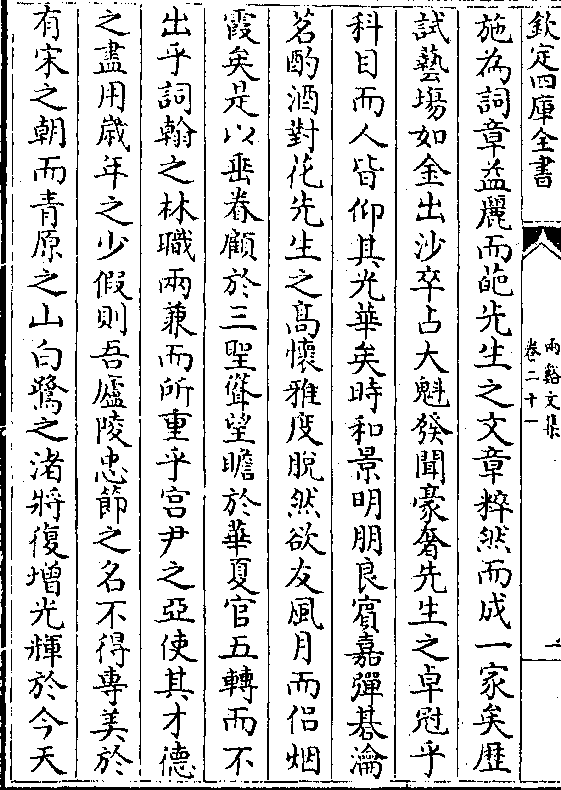 欽定四庫全書
兩谿文集
卷二十一
施為詞章益麗而葩先生之文章粹然而成一家矣歴
試藝塲如金出沙卒占大魁發聞豪奢先生之卓冠乎
科目而人皆仰其光華矣時和景明朋良賓嘉彈棊瀹
茗酌酒對花先生之髙懷雅度脫然欲友風月而侣烟
霞矣是以垂眷顧於三聖聳望瞻於華夏官五轉而不
出乎詞翰之林職兩兼而所重乎宫尹之亞使其才德
之盡用歳年之少假則吾廬陵忠節之名不得專美於
有宋之朝而青原之山白鷺之渚將復増光輝於今天